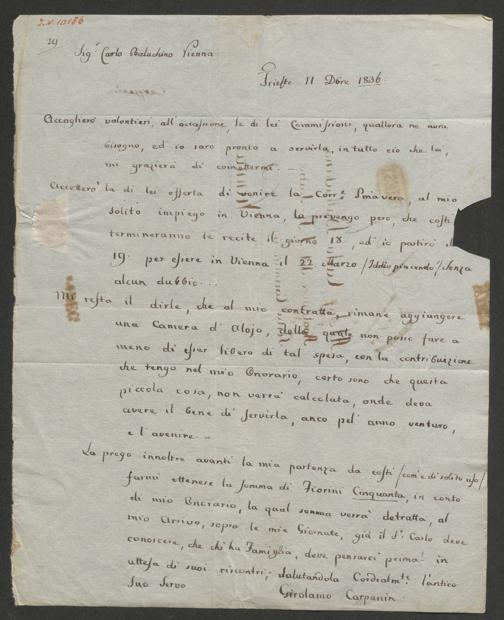 I.N. 10186
29
Sig.r Carlo Balochino Vienna
Trieste 11 Dbre 1836
Accogliero volontieri, all'occasione, le di lei Commissioni, quallora ne avra
bisogno, ed io saro pronto a servirla, in tutto cio che la,
mi grazierà di
Accettero la di lei offerta di venire la Corr.e Primavera, al mio
solito impiego in Vienna, la prevengo pero, che costi
termineranno le recite il giorno 18, ed io partirò il
19. per essere in Vienna il 22 Marzo / Iddio piacendo / senza
alcun dubbio.
Mi resta il dirle, che al mio contratto, rimane aggiungere
una Camera d'Alojo, della quale non posso fare a
meno di esser libero di tal spesa, con la contribuizione
che tengo nel mio Onorario, certo sono che questa
piccola cosa, non verrà calcolata, onde deva
avere il bene di servirla, anco pel anno venturo,
e l'avenire.
La prego innoltre avanti la mia partenza da costi / com'è di solito uso /
farmi ottenere la somma di Fiorini Cinquanta, in conto
di mio Onorario, la qual somma verrà detratta, al
mio Arrivo, sopra le mie Giornate, già il S.r Carlo deve
conoscere, che chi ha Famiglia, deve pensarci prima! in
attesa di suoi riscontri, salutandola Cordialm.te l'antico
suo servo
Girolamo Carpanin